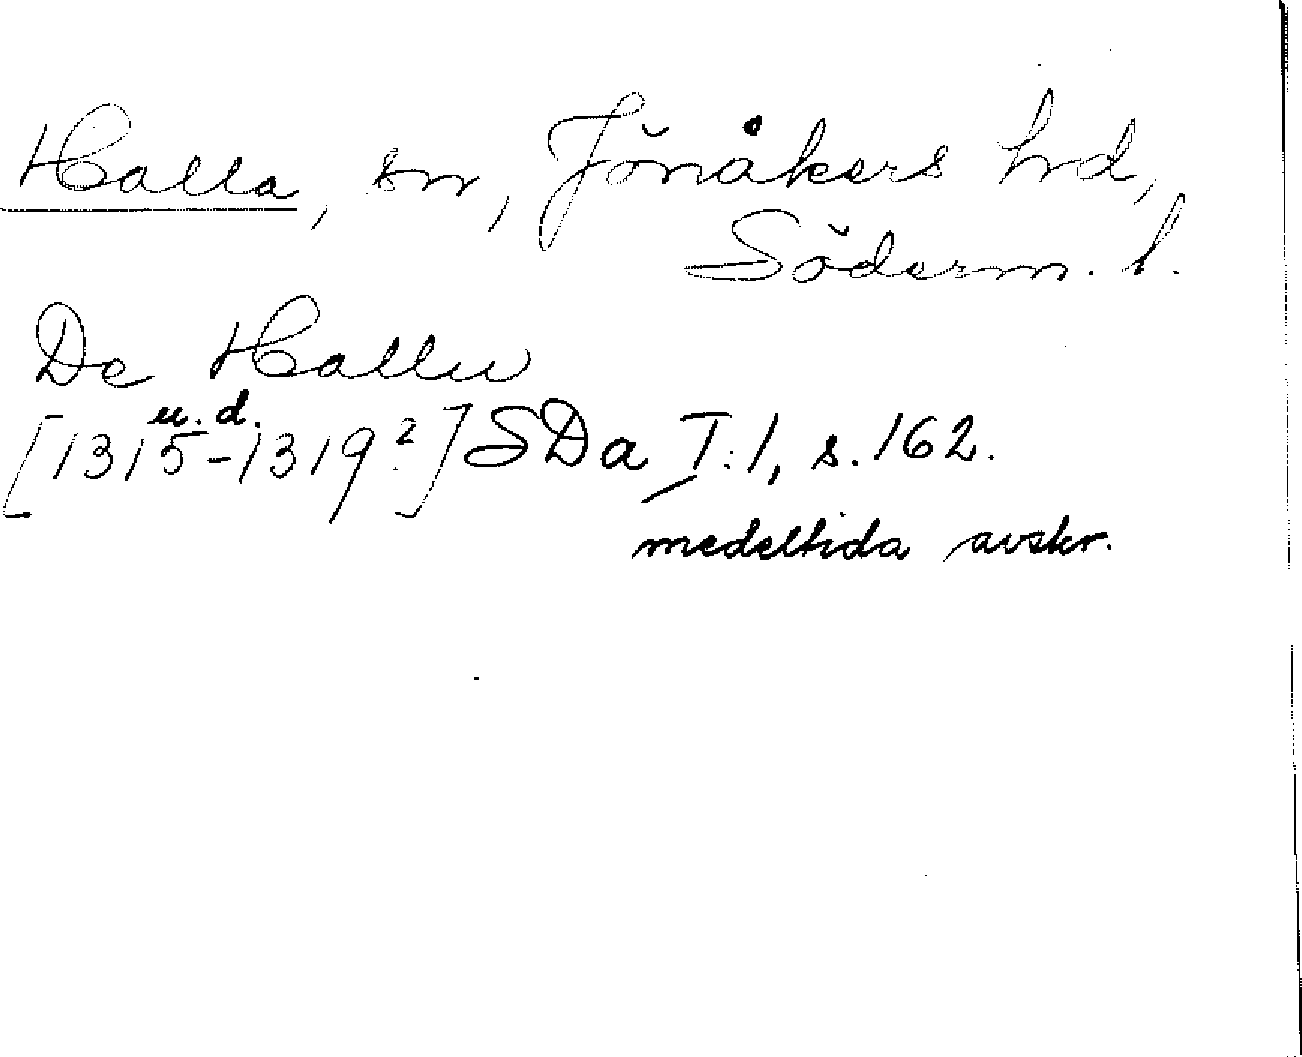 Halla, sn, Jönåkers hrd,
Söderm. l.
De Hallu
u. d.
[1315-1319?] SDa I:1, s. 162.
medeltida avskr.